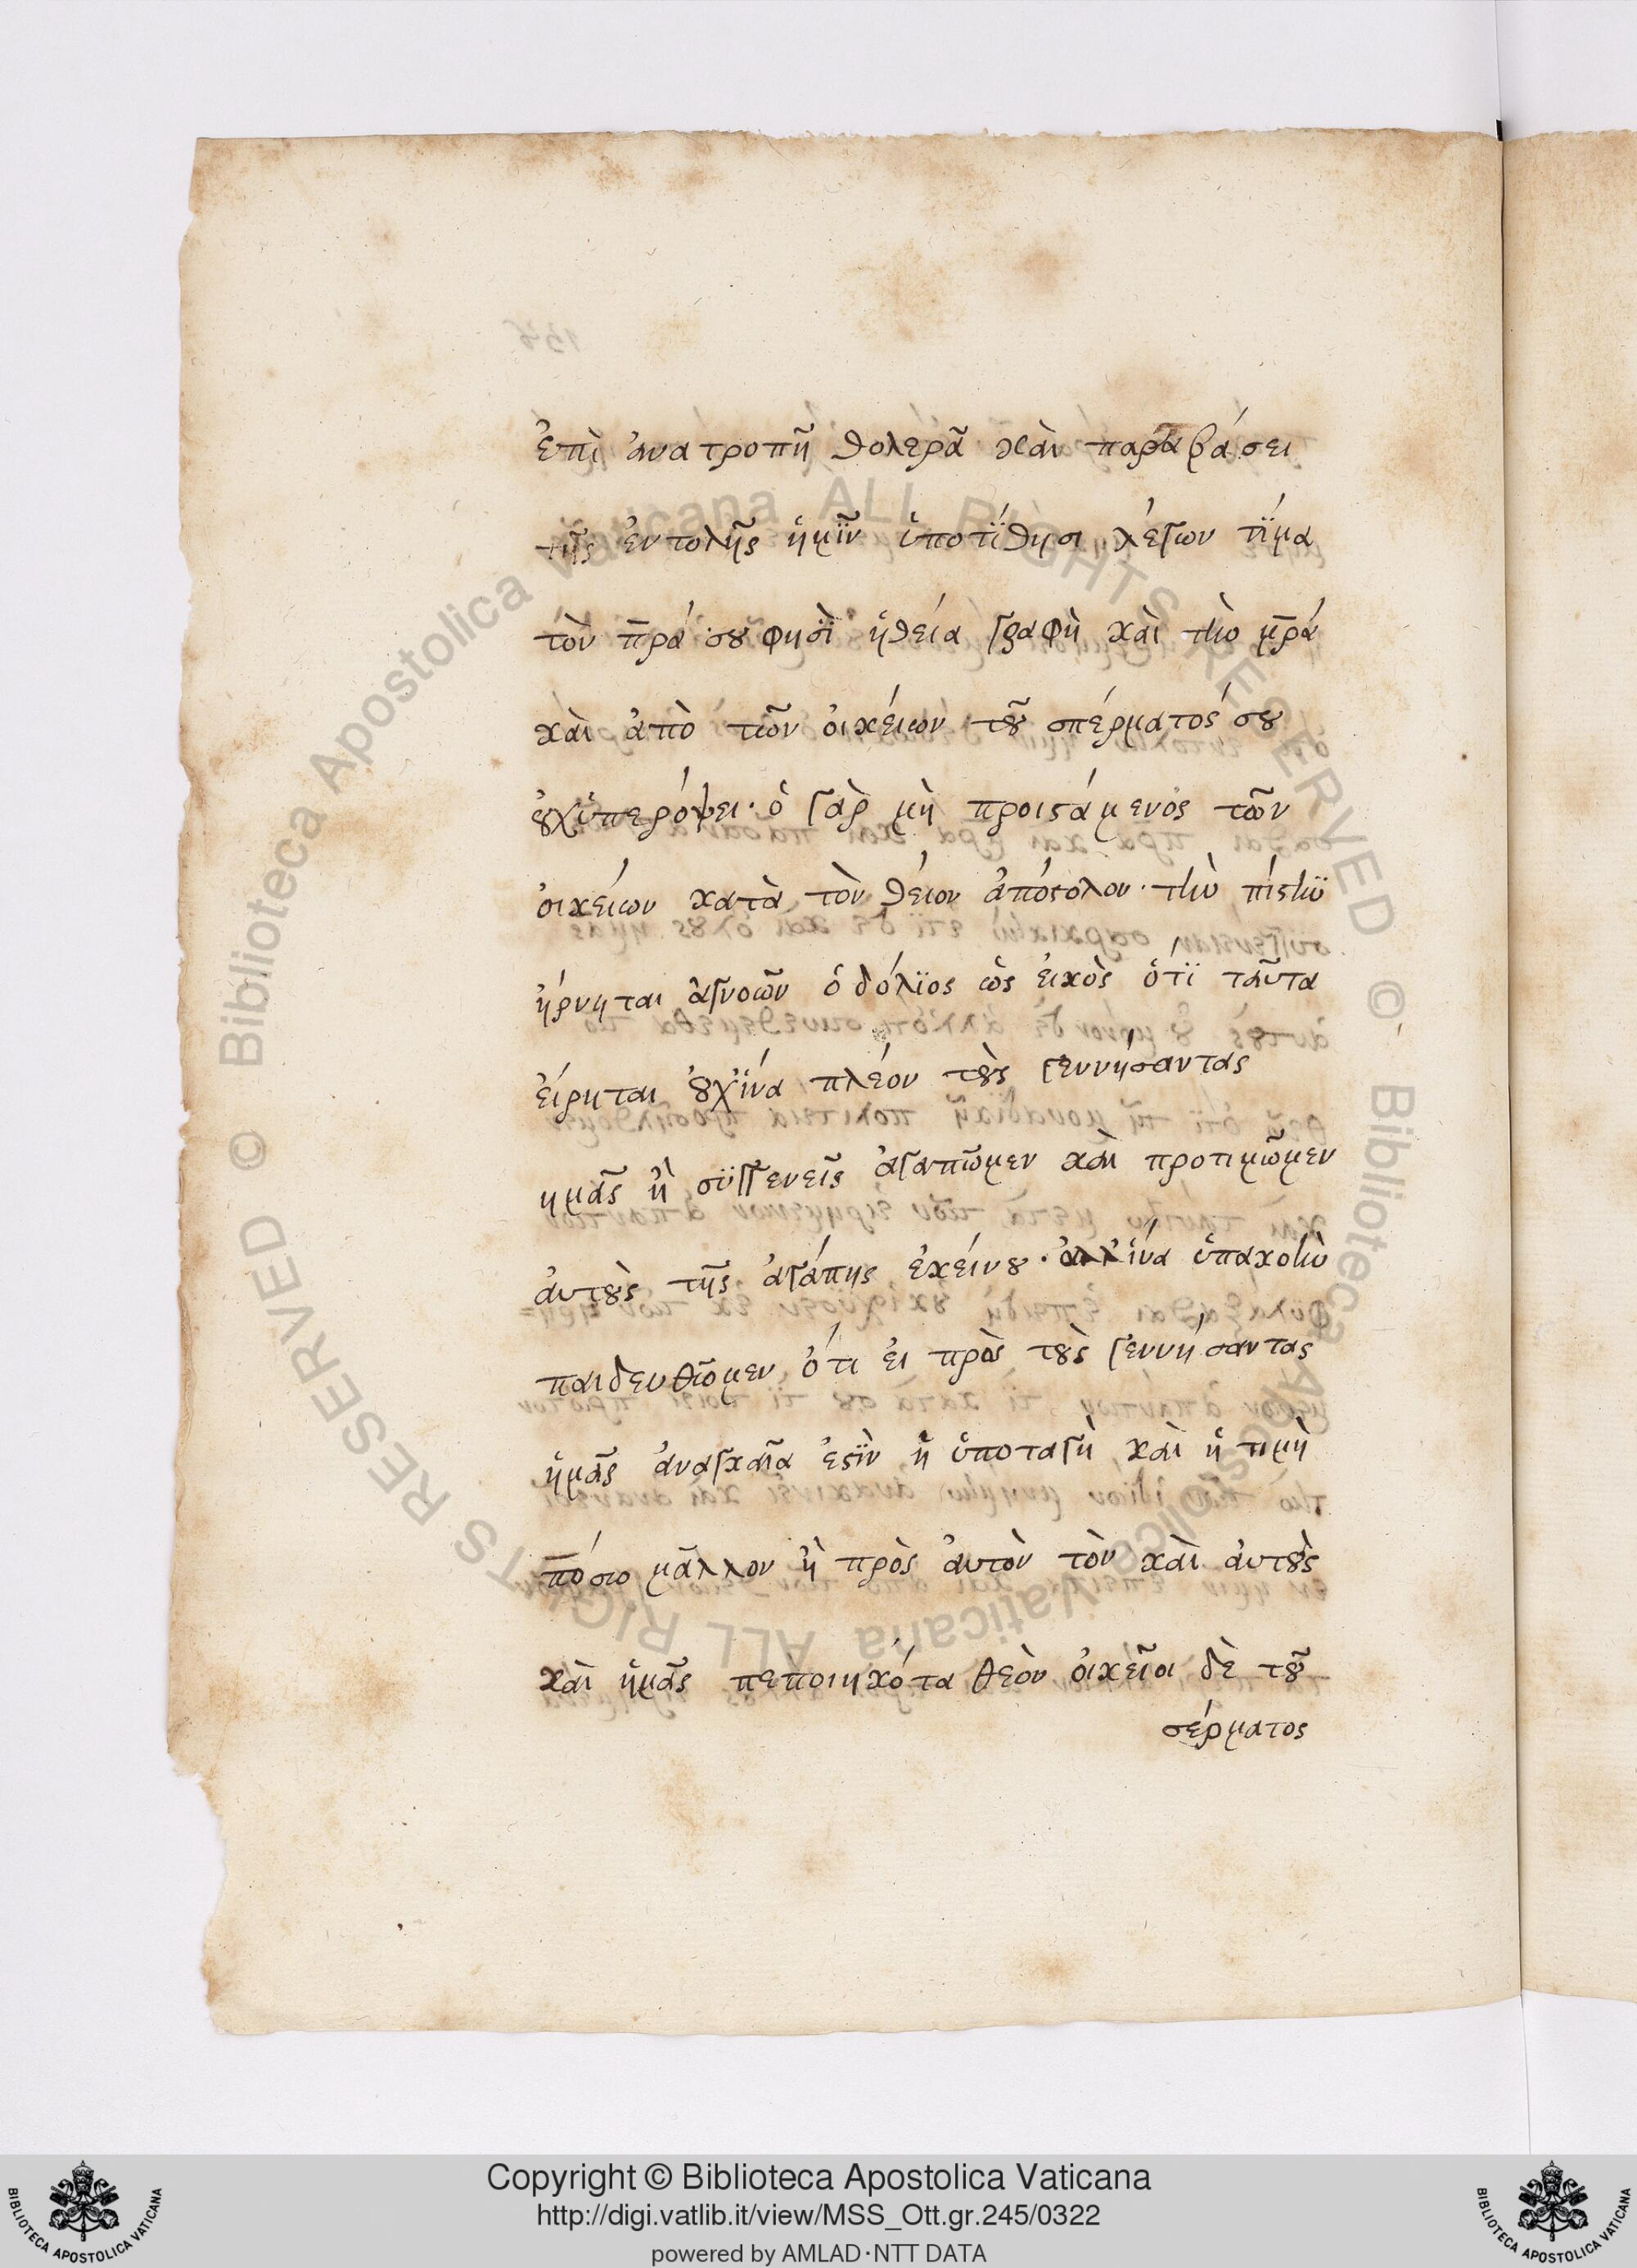 ἐπὶ ἀνατροπῆ θολερᾶ καὶ παραβάσει
τῆς ἐντολῆς ἡμῖν ὑποτίθησι λέγων τίμα
τὸν πρα σου φησὶ ἡ θεία γραφὴ καὶ τὴν μρα
καὶ ἀπὸ τῶν οἰκείων τοῦ σπέρματός σου
οὐχ ὑπερόψει· ὁ γὰρ μὴ προιστάμενος τῶν
οἰκείων κατὰ τὸν θεῖον ἀπόστολον· τὴν πίστιν
ἠρνηται ἀγνοῶν ὁ δόλϊος ὡς εἰκὸς ὅτϊ ταῦτα
εἴρηται οὐχ ἵνα πλέον τοὺς γεννήσαντας
ημᾶς ἢ συγγενεῖς ἀγαπῶμεν καὶ προτιμῶμεν
ἀυτοὺς τῆς ἀγάπης ἐκείνου· ἀλλ ἵνα ὑπακοὴν
παιδευθῶμεν ὅτι εἰ πρὸς τοὺς γεννήσαντας
ἡμᾶς ἀναγκαῖα ἐστϊν ἡ ὑποταγὴ καὶ ἡ τιμὴ
πόσω μᾶλλον ἢ πρὸς ἀυτὸν τὸν καὶ ἀυτοὺς
καὶ ἡμᾶς πεποιηκότα θεὸν οἰκεῖοι δὲ τοῦ
σέρματος
Copyright © Biblioteca Apostolica Vaticana
http://digi.vatlib.it/view/MSS_Ott.gr.245/0322
powered by AMLAD·NTT DATA
BIBLIOTECA APOSTOLICA VATICANA
BIBLIOTECA APOSTOLICA VATICANA
© Biblioteca Apostolica Vaticana ALL RIGHTS RESERVED © Biblioteca Apostolica Vaticana ALL RIGHTS RESERVED